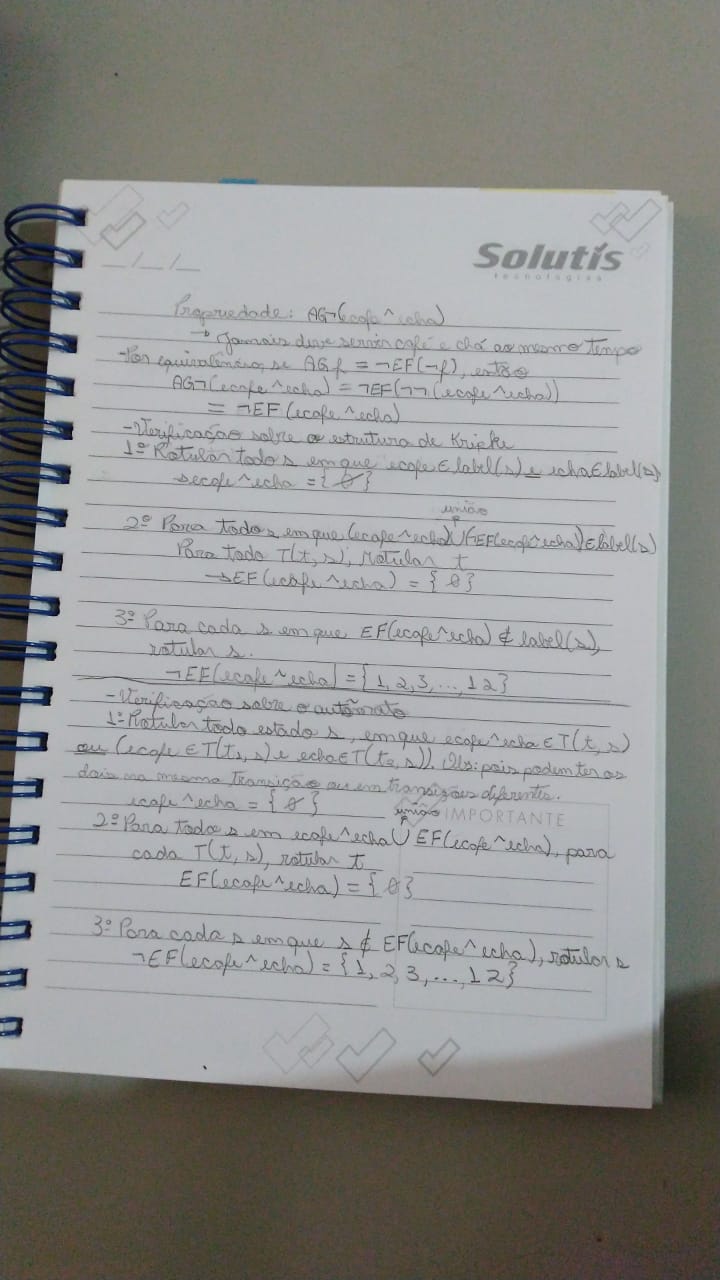 Solutis
tecnologias
__/__/__
Propriedade: AG¬(ecafe ^ echa)
→ Jamais deve servir café e chá ao mesmo tempo
- Por equivalência, se AG f = ¬EF(¬f), então
AG¬(ecafe ^ echa) = ¬EF(¬¬(ecafe ^ echa))
= ¬EF(ecafe ^ echa)
- Verificação sobre a estrutura de Kripke
1º Rotular todo s em que ecafe ∈ label(s) e echa ∈ label(s)
→ ecafe ^ echa = {∅}
união
2º Para todo s em que (ecafe ^ echa) ∪ (¬EF(ecafe ^ echa)) ∈ label(s)
Para todo T(t, s), rotular t
→ EF(ecafe ^ echa) = {∅}
3º Para cada s em que EF(ecafe ^ echa) ∉ label(s),
rotular s.
¬EF(ecafe ^ echa) = {1, 2, 3, ..., 12}
- Verificação sobre o autômato
1º Rotular todo estado s, em que ecafe ^ echa ∈ T(t, s)
ou (ecafe ∈ T(t₁, s) e echa ∈ T(t₂, s)). Obs: pois podem ter os
dois na mesma transição ou em transições diferentes.
ecafe ^ echa = {∅}
união
IMPORTANTE
2º Para todo s em ecafe ^ echa ∪ EF(ecafe ^ echa), para
cada T(t, s), rotular t
EF(ecafe ^ echa) = {∅}
3º Para cada s em que s ∉ EF(ecafe ^ echa), rotular s
¬EF(ecafe ^ echa) = {1, 2, 3, ..., 12}